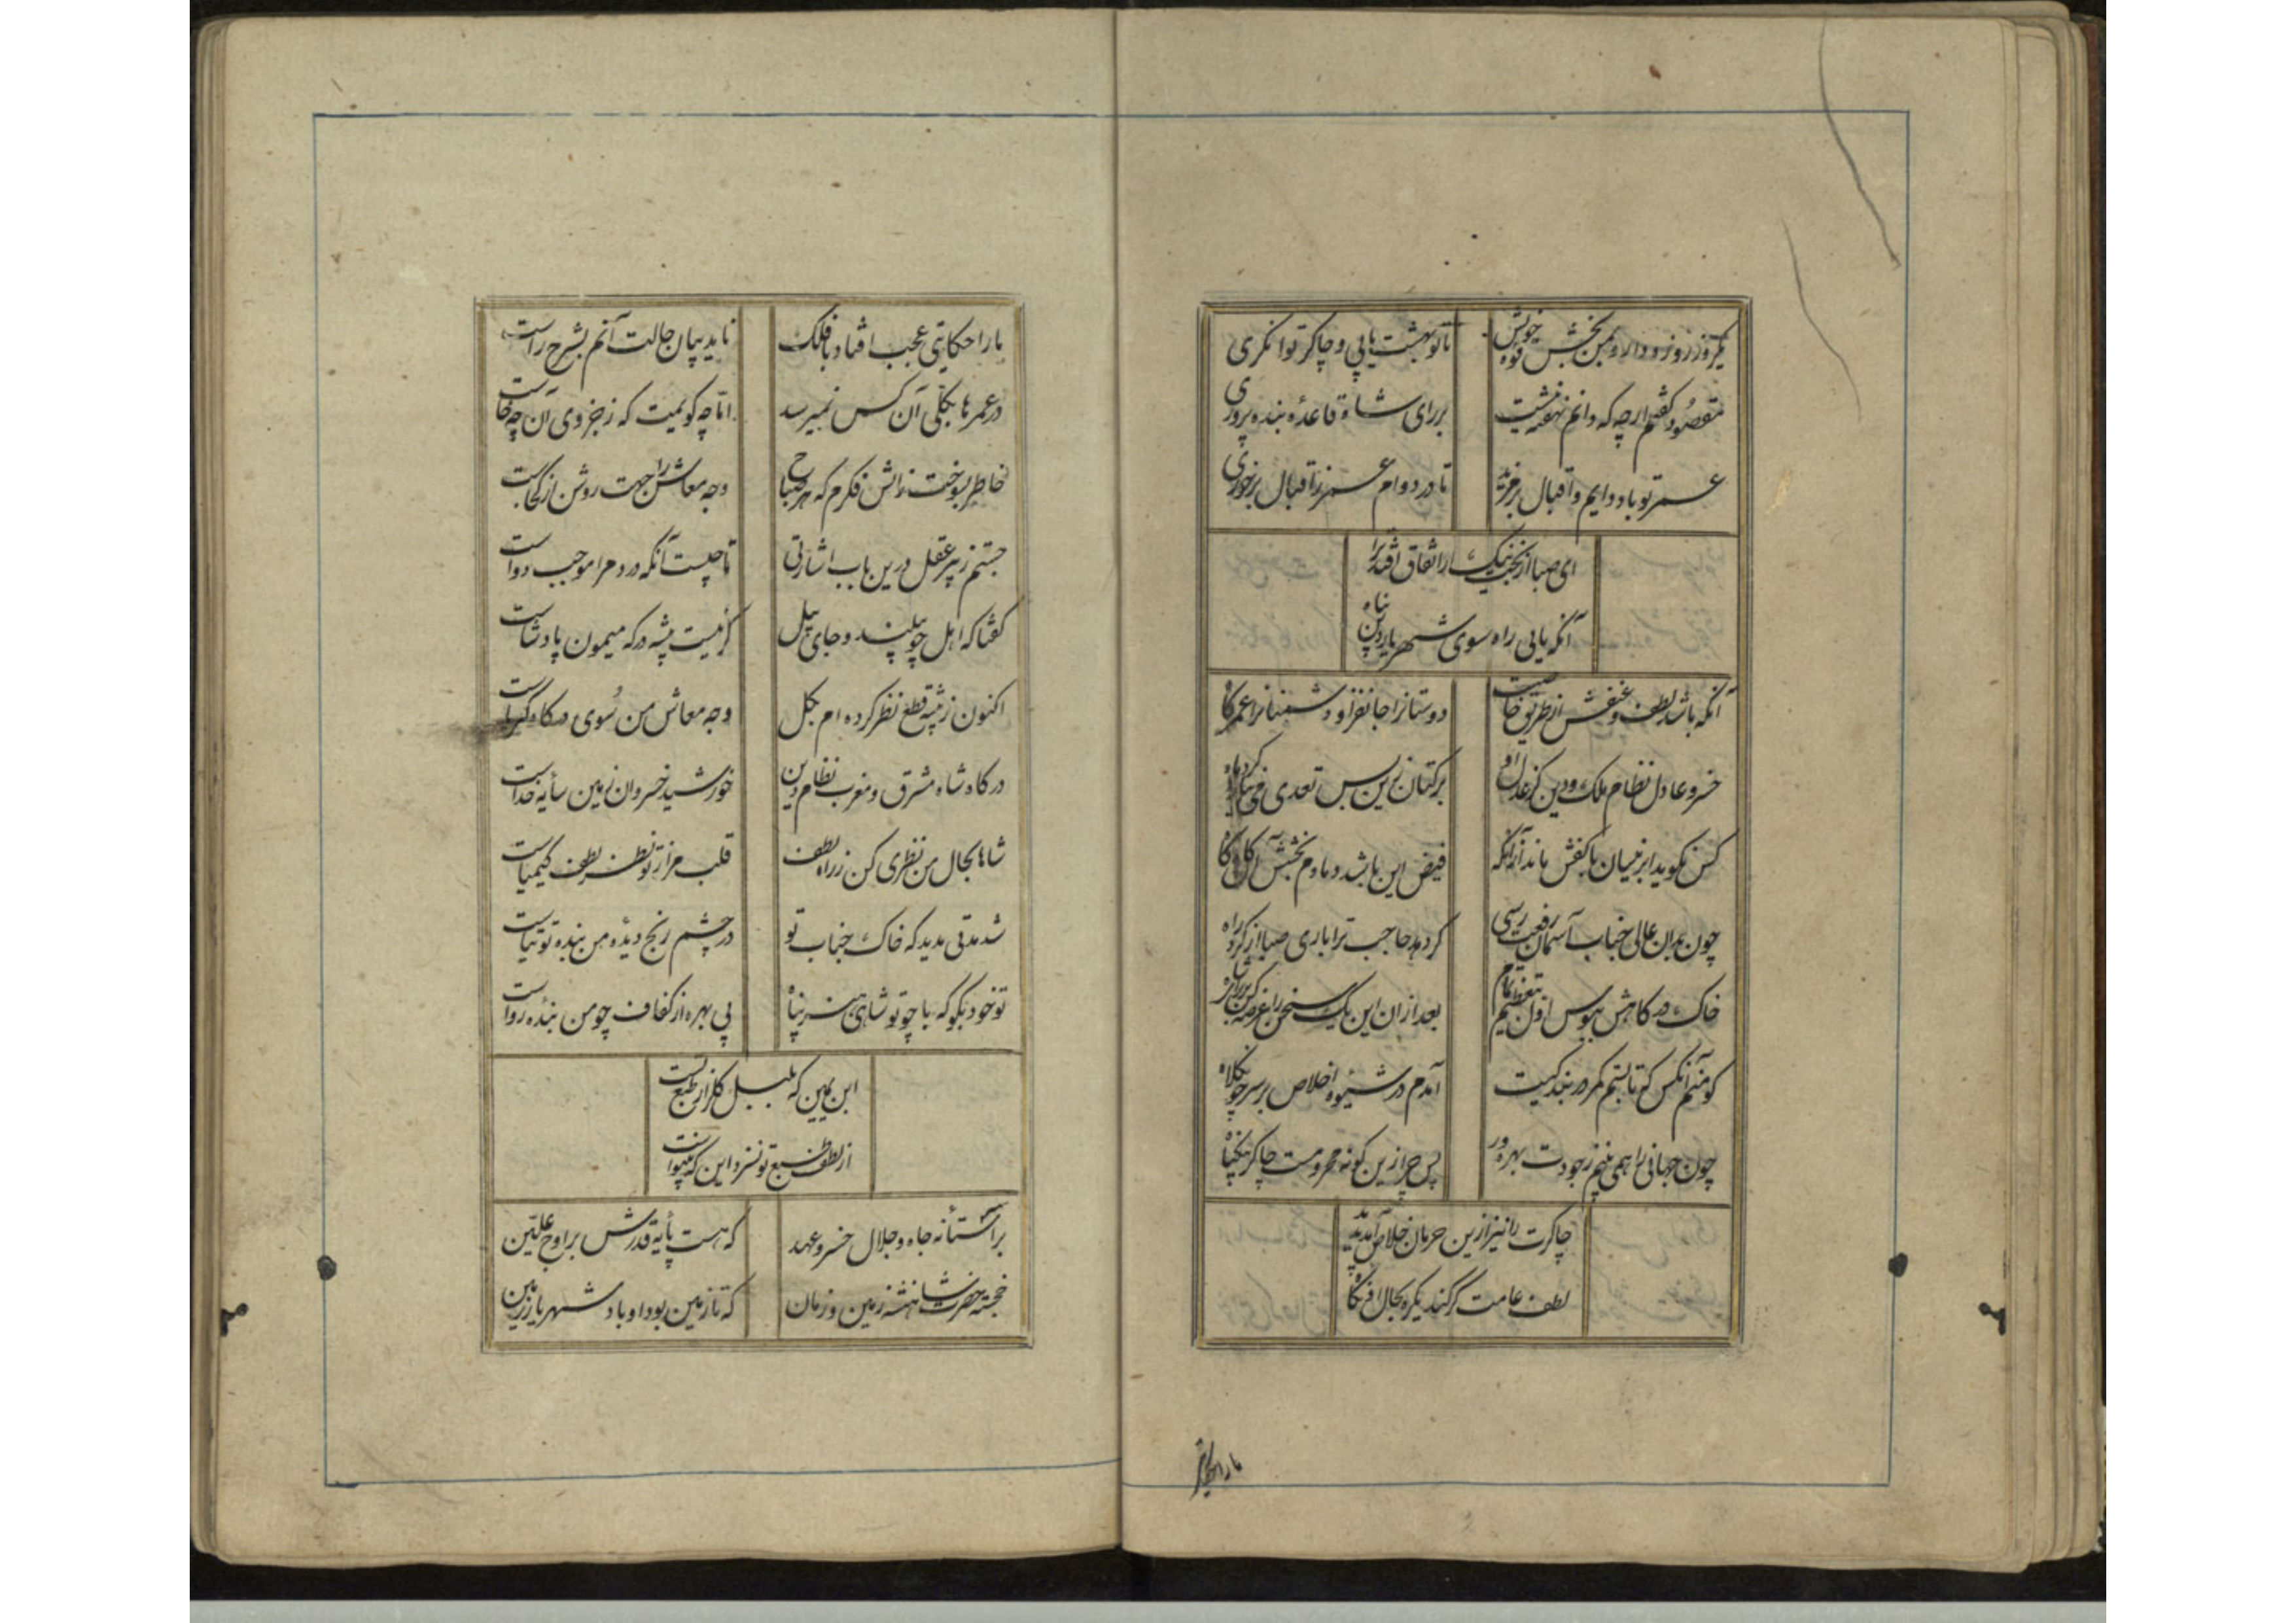 یکروز زر و زور و دار و بمن بخش قوه خویش تا تو بهشت یابی و چاکر توانگری
مقصود گفتم ارچه که دانم نهفته نیست بر رای شاه قاعدهٔ بنده پروری
عمر تو باد دایم و اقبال بر مزید تا در دوام عمر ز اقبال برخوری
ای صبا از بخت نیک ار اتفاق افتد ترا
آنکه یابی راه سوی شهریار دین پناه
آنکه باشد لطف و عنفش از طریق خاصیت دوستانرا جانفزا و دشمنانرا عمر کاه
خسرو عادل نظام ملک و دین کز عدل او بر کتان زین پس تعدی می نیارد کرد ماه
کس نکوید ابر نیسان با کفش ماند از آنکه فیض این باشد دمادم بخشش آن گاه گاه
چون بدان عالی جناب آسمان رفعت رسی گر دهد حاجب ترا باری صبا از گرد راه
خاک درگاهش ببوس اول بتعظیم تمام بعد از آن این یک سخن را عرضه کن بر رای شاه
کو منم آنکس که تا بستم کمر در بندگیت آمدم در شیوه اخلاص بر سر چون کلاه
چون جهانی را همی بینم ز جودت بهره ور پس چرا زین گونه محرومست چاکر بی گناه
چاکرت را نیز ازین حرمان خلاص آمد پدید
لطف عامت گر کند یکره بحال او نگاه
ما را حکایتی
ما را حکایتی عجب افتاد با فلک ناید بپان حالت آنم بشرح راست
در عمرها بکلی آن کس نمیرسد اما چه گویمت که ز جزوی آن چه خاست
خاطر بسوخت ز آتش فکرم که هر صباح وجه معاش را جهت روشن از کجاست
جستم ز پیر عقل درین باب اشارتی تا چیست آنکه درد مرا موجب دواست
گفتا که اهل چو پیلند و جای پیل گر نیست پیشه درگه میمون پادشاست
اکنون ز پیشه قطع نظر کرده ام بکل وجه معاش من سوی درگاه کبریاست
درگاه شاه مشرق و مغرب نظام دین خورشید خسروان زمین سایه خداست
شاها بحال من نظری کن ز راه لطف قلب مرا ز تو نظر لطف کیمیاست
شد مدتی مدید که خاک جناب تو در چشم رنج دیدهٔ من بنده توتیاست
تو خود بگو که با چو تو شاهی هنر پناه بی بهره از کفاف چو من بنده رواست
ابن یمین که بلبل گلزار طبع تست
از لطف طبع تو نسزد این که بینواست
بر آستانه جاه و جلال خسرو عهد که هست پایهٔ قدرش بر اوج علیین
خجسته حضرت شاهنشه زمین و زمان که تا زمین بود او باد شهریار زمین